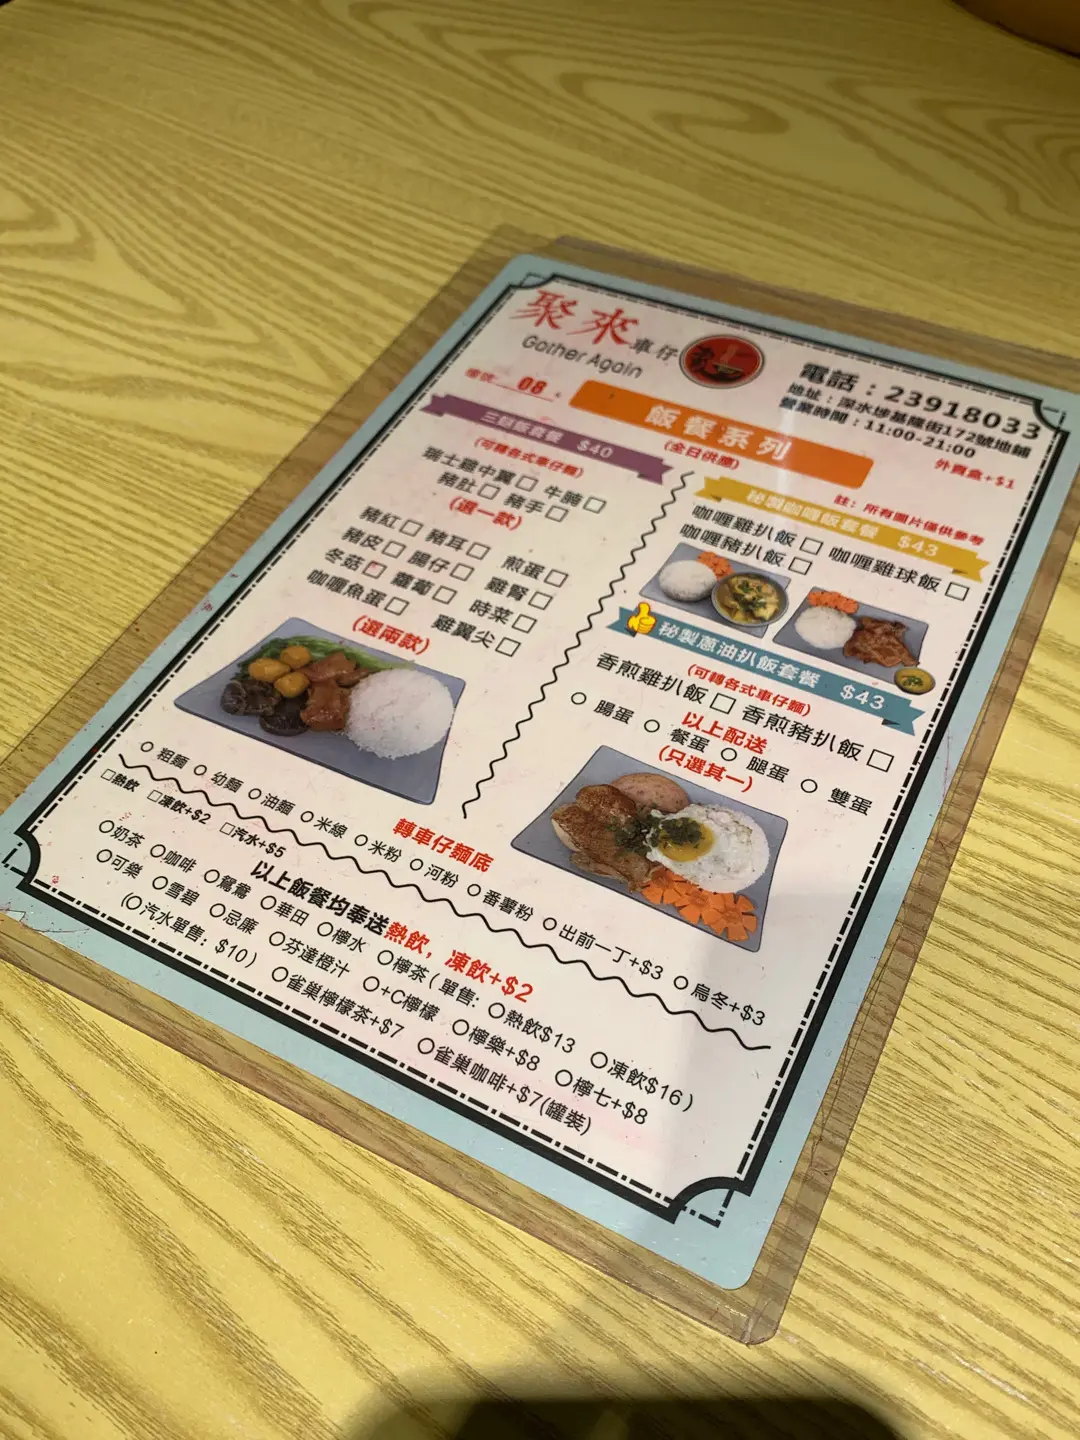 聚來車仔麵
Gather Again
電話：23918033
地址：深水埗基隆街172號地鋪
營業時間：11:00-21:00
檯號 08
飯餐系列
(全日供應)
外賣盒+$1
註：所有圖片僅供參考
三餸飯套餐 $40
(可轉各式車仔麵)
瑞士雞中翼□ 牛腩□
豬肚□ 豬手□
(選一款)
豬紅□ 豬耳□ 煎蛋□
豬皮□ 腸仔□ 雞腎□
冬菇□ 蘿蔔□ 時菜□
咖喱魚蛋□ 雞翼尖□
(選兩款)
秘製咖喱飯套餐 $43
咖喱雞扒飯□ 咖喱雞球飯□
咖喱豬扒飯□
秘製蔥油扒飯套餐 $43
(可轉各式車仔麵)
香煎雞扒飯□ 香煎豬扒飯□
以上配送
○ 腸蛋 ○ 餐蛋 ○ 腿蛋 ○ 雙蛋
(只選其一)
轉車仔麵底
○ 粗麵 ○ 幼麵 ○油麵 ○米線 ○米粉 ○河粉 ○番薯粉 ○出前一丁+$3 ○烏冬+$3
以上飯餐均奉送熱飲，凍飲+$2
□熱飲 □凍飲+$2 □汽水+$5
○奶茶 ○咖啡 ○鴛鴦 ○華田 ○檸水 ○檸茶 (單售: ○熱飲$13 ○凍飲$16)
○可樂 ○雪碧 ○忌廉 ○芬達橙汁 ○+C檸檬 ○檸樂+$8 ○檸七+$8
(○汽水單售: $10) ○雀巢檸檬茶+$7 ○雀巢咖啡+$7(罐裝)